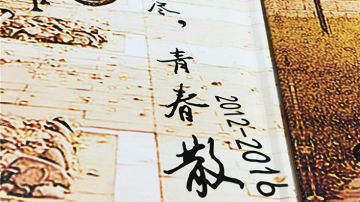 尽，青春散
2012-2016